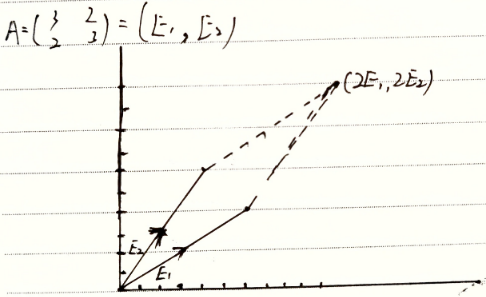 A=(3 2
2 3) = (E₁, E₂)
(2E₁, 2E₂)
E₂
E₁